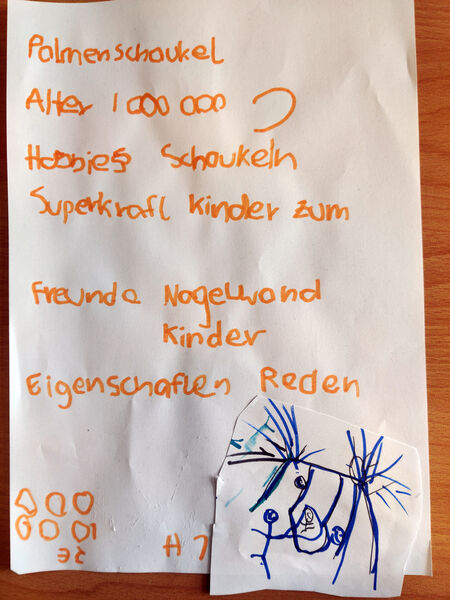 Palmenschaukel
Alter 1 000 000
Hobbies Schaukeln
Superkraft Kinder zum
Freunde Nagelwand
Kinder
Eigenschaften Reden